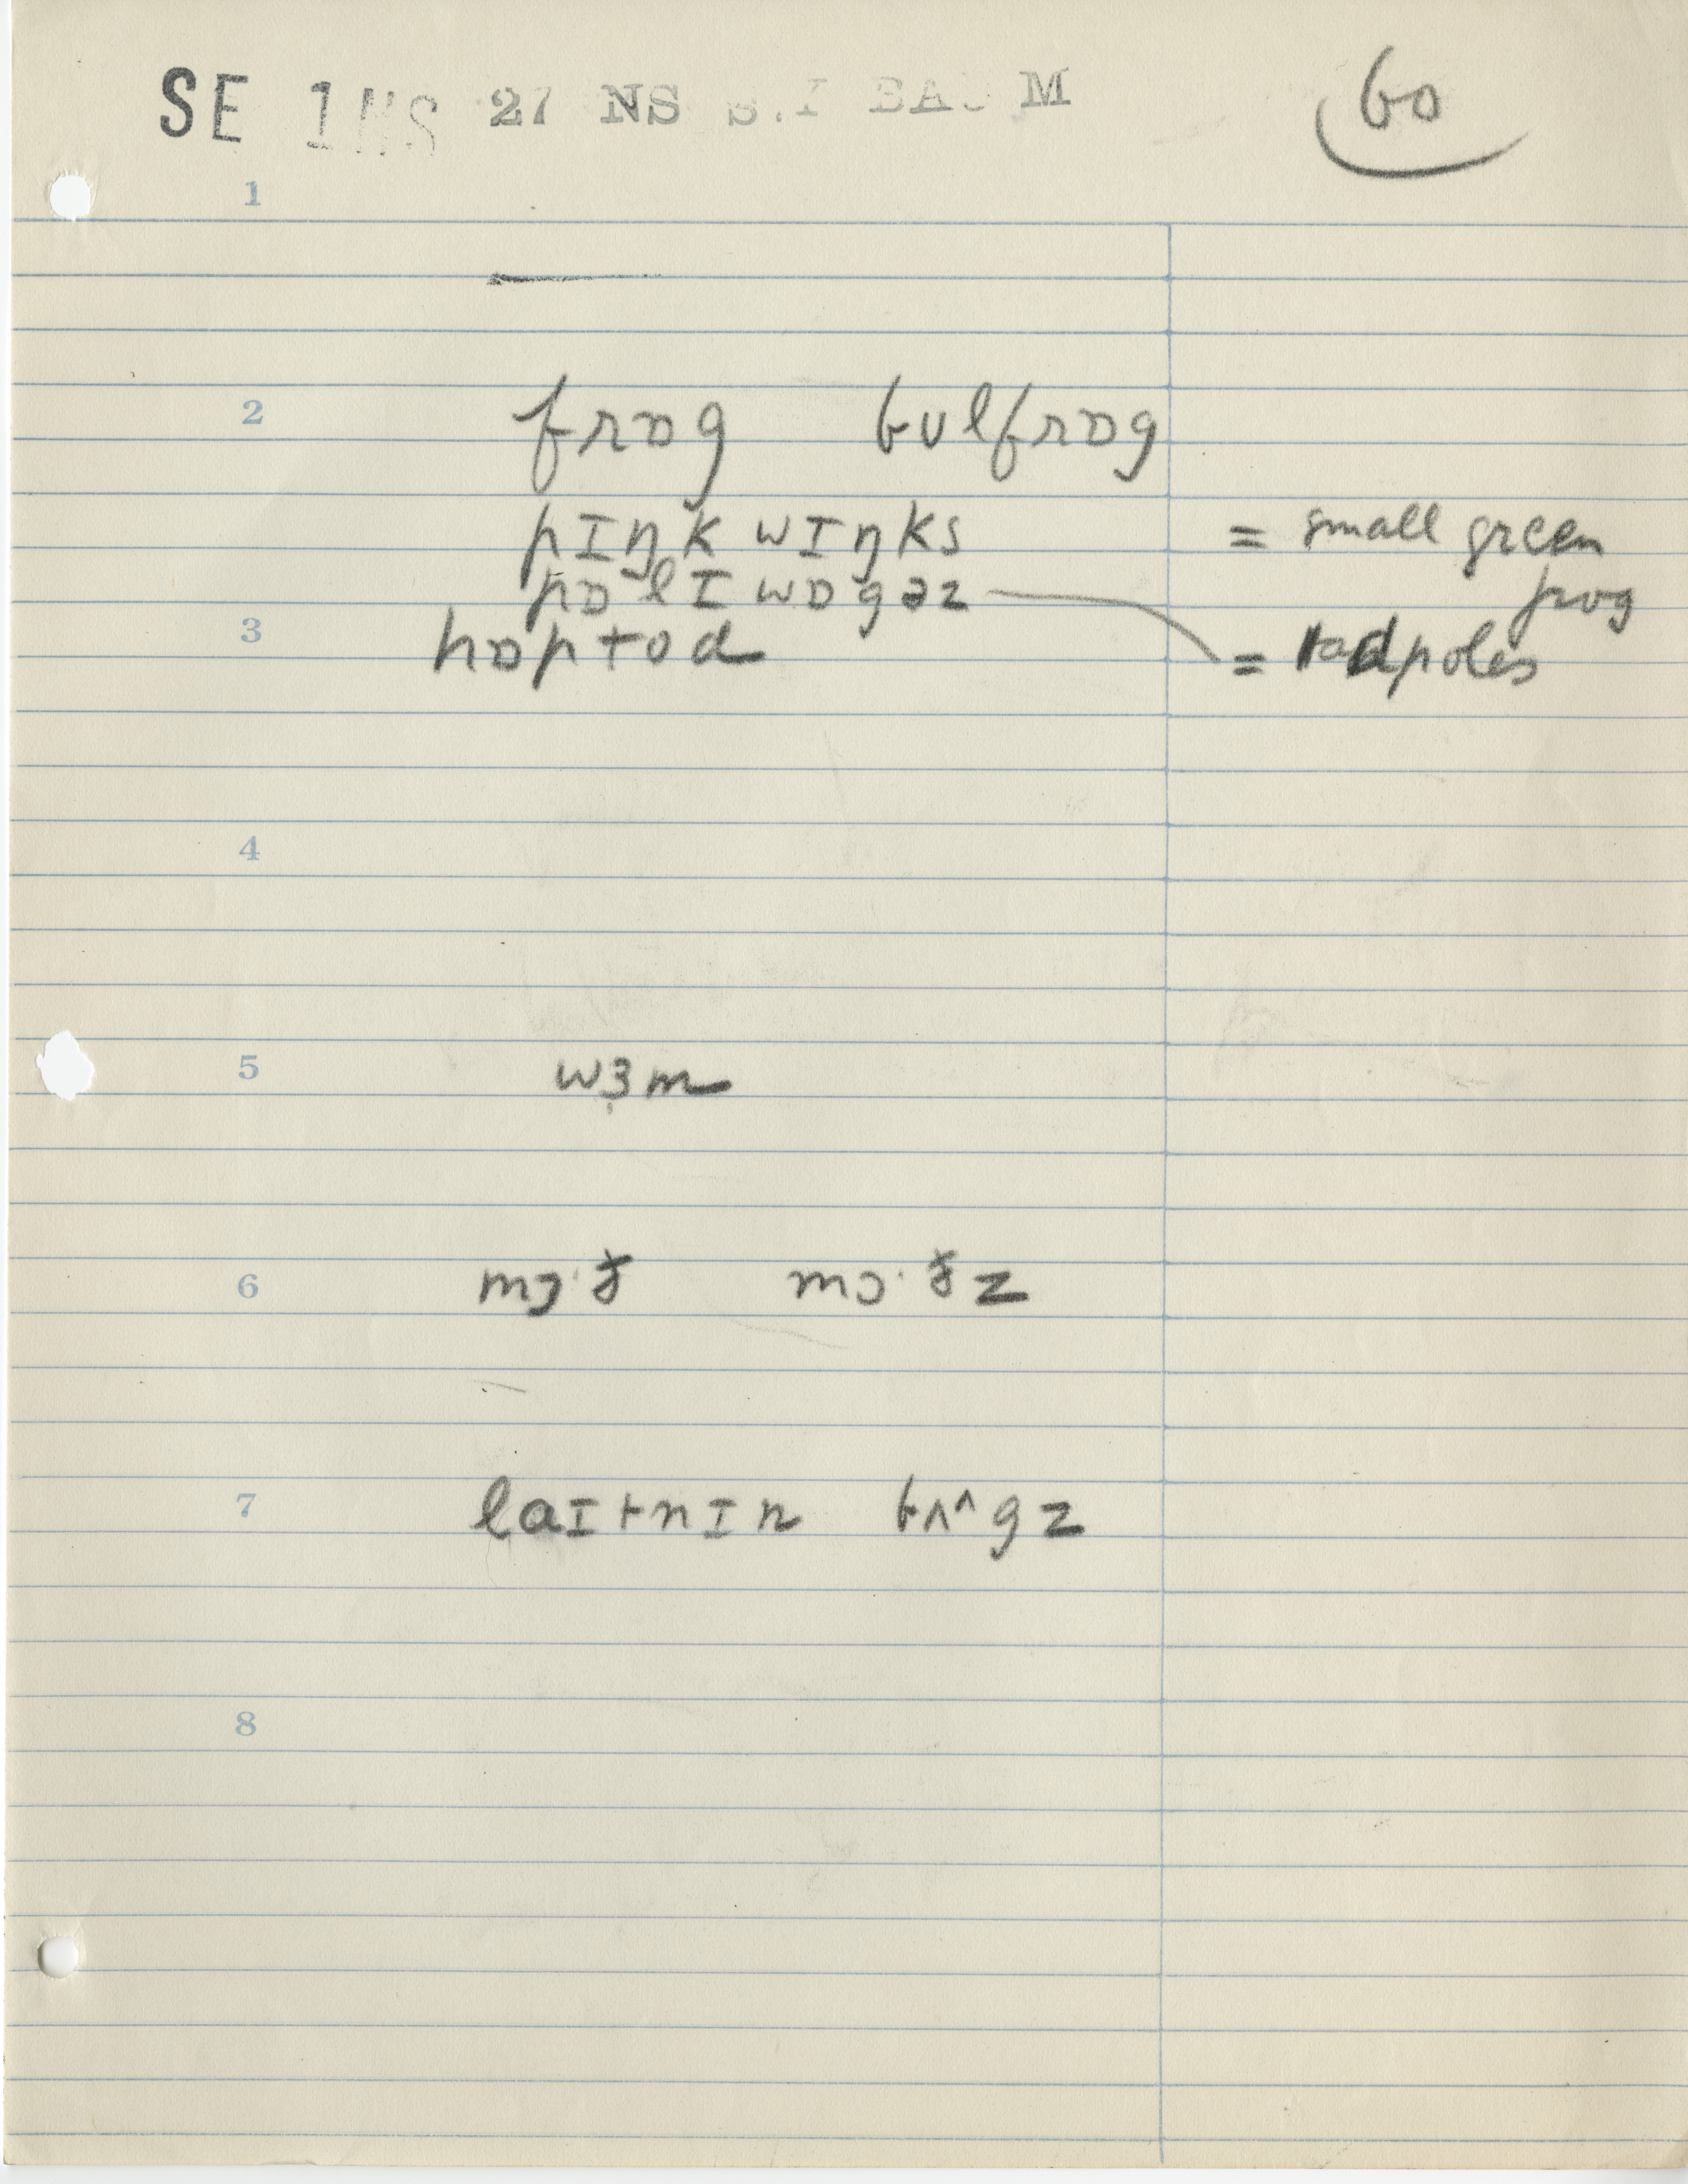 SE 1NS 27 NS 60
1
2 frɒg bʊlfrɒg
pɪŋk wɪŋks = small green
pɒlɪwɒgəz frog
3 hɒptod = tadpoles
4
5 wɜm
6 mɔ·ɚ mɔ·ɚz
7 laɪtnɪn bʌ^gz
8